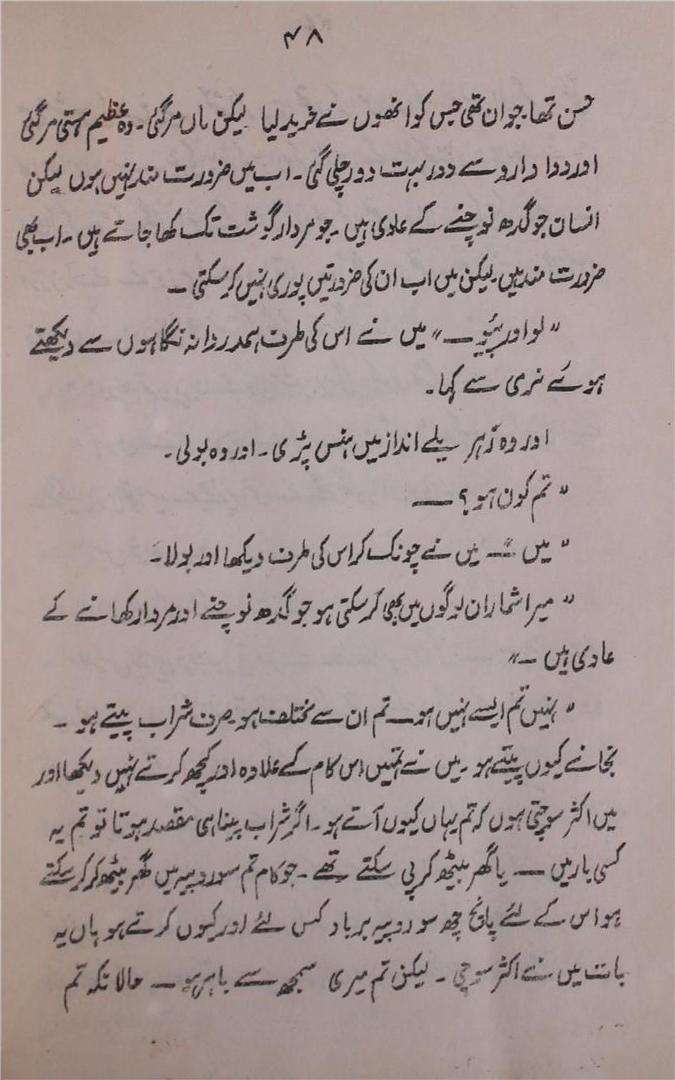 ۴۸
حسن تھا۔جوان تھی جس کو انھوں نے خرید لیا لیکن ماں مرگئی۔ وہ عظیم ہستی مرگئی
اور دوا دارو سے دور بہت دور چلی گئی۔ اب میں ضرورت مند نہیں ہوں لیکن
انسان جو گدھ نوچنے کے عادی ہیں۔ جو مردار گوشت تک کھا جاتے ہیں۔ اب بھی
ضرورت مند ہیں۔ لیکن میں اب ان کی ضرورتیں پوری نہیں کر سکتی ۔
"لو اور پیئو ــ" میں نے اس کی طرف ہمدردانہ نگاہوں سے دیکھتے
ہوئے نرمی سے کہا۔
اور وہ زہریلے انداز میں ہنس پڑی۔ اور وہ بولی۔
"تم کون ہو؟ ــ
"میں ــ میں نے چونک کر اس کی طرف دیکھا اور بولا۔
"میرا شمار ان لوگوں میں بھی کر سکتی ہو جو گدھ نوچنے اور مردار کھانے کے
عادی ہیں ــ"
"نہیں تم ایسے نہیں ہو ــ تم ان سے مختلف ہو۔ صرف شراب پیتے ہو ۔
نجانے کیوں پیتے ہو۔ میں نے تمہیں اس کام کے علاوہ اور کچھ کرتے نہیں دیکھا اور
میں اکثر سوچتی ہوں کہ تم یہاں کیوں آتے ہو۔ اگر شراب پینا ہی مقصد ہوتا تو تم یہ
کسی بار میں ــ یا گھر بیٹھ کر پی سکتے تھے ۔ جو کام تم سو روپیہ میں گھر بیٹھ کر کر سکتے
ہو اس کے لئے پانچ چھ سو روپیہ برباد کس لئے اور کیوں کرتے ہو ہاں یہ
بات میں نے اکثر سوچی ۔ لیکن تم میری سمجھ سے باہر ہو ــ حالانکہ تم